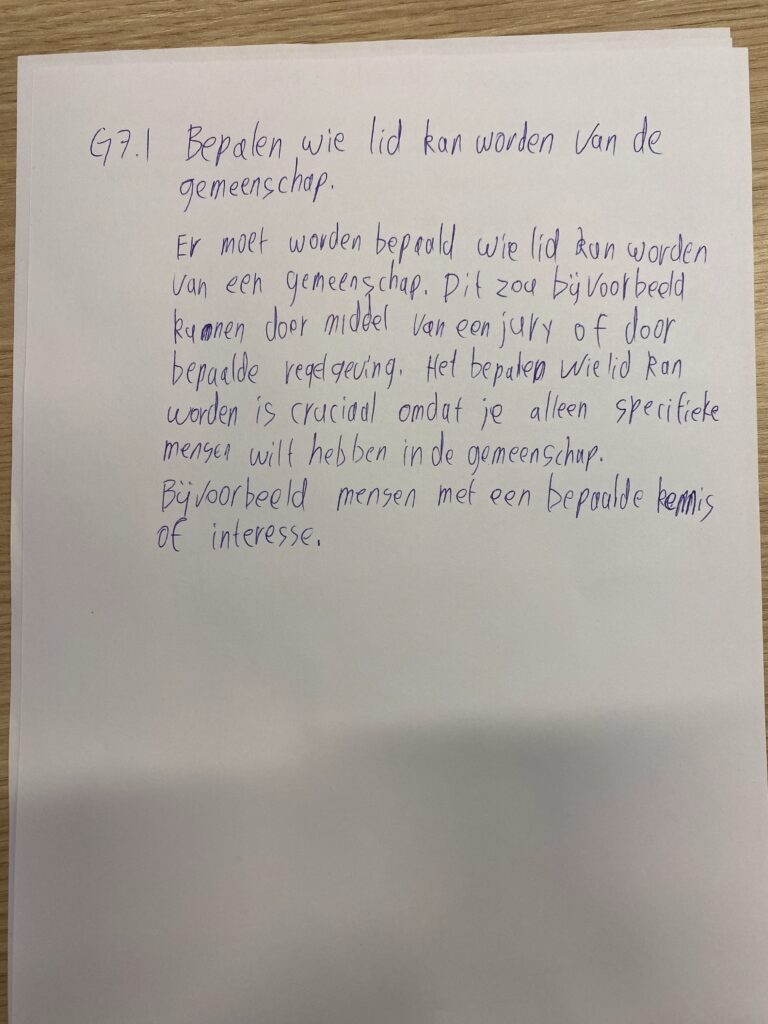 G7.1 Bepalen wie lid kan worden van de
gemeenschap.
Er moet worden bepaald wie lid kan worden
van een gemeenschap. Dit zou bijvoorbeeld
kunnen door middel van een jury of door
bepaalde regelgeving. Het bepalen wie lid kan
worden is cruciaal omdat je alleen specifieke
mensen wilt hebben in de gemeenschap.
Bijvoorbeeld mensen met een bepaalde kennis
of interesse.